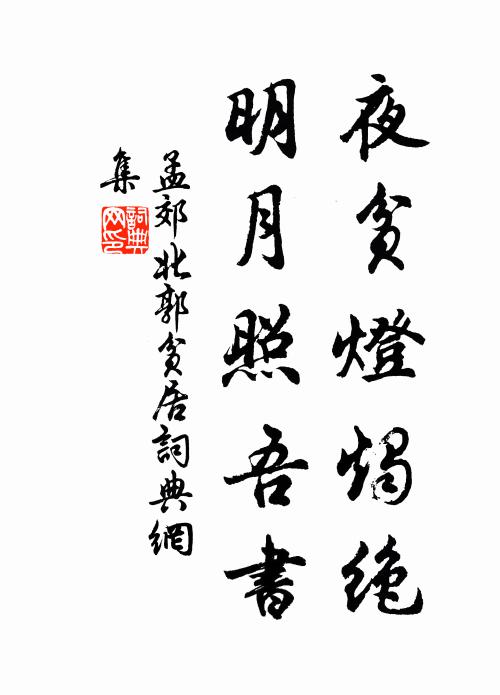 夜貧燈燭絶
明月照吾書
孟郊北郭貧居詞典網
集
詞典
网印